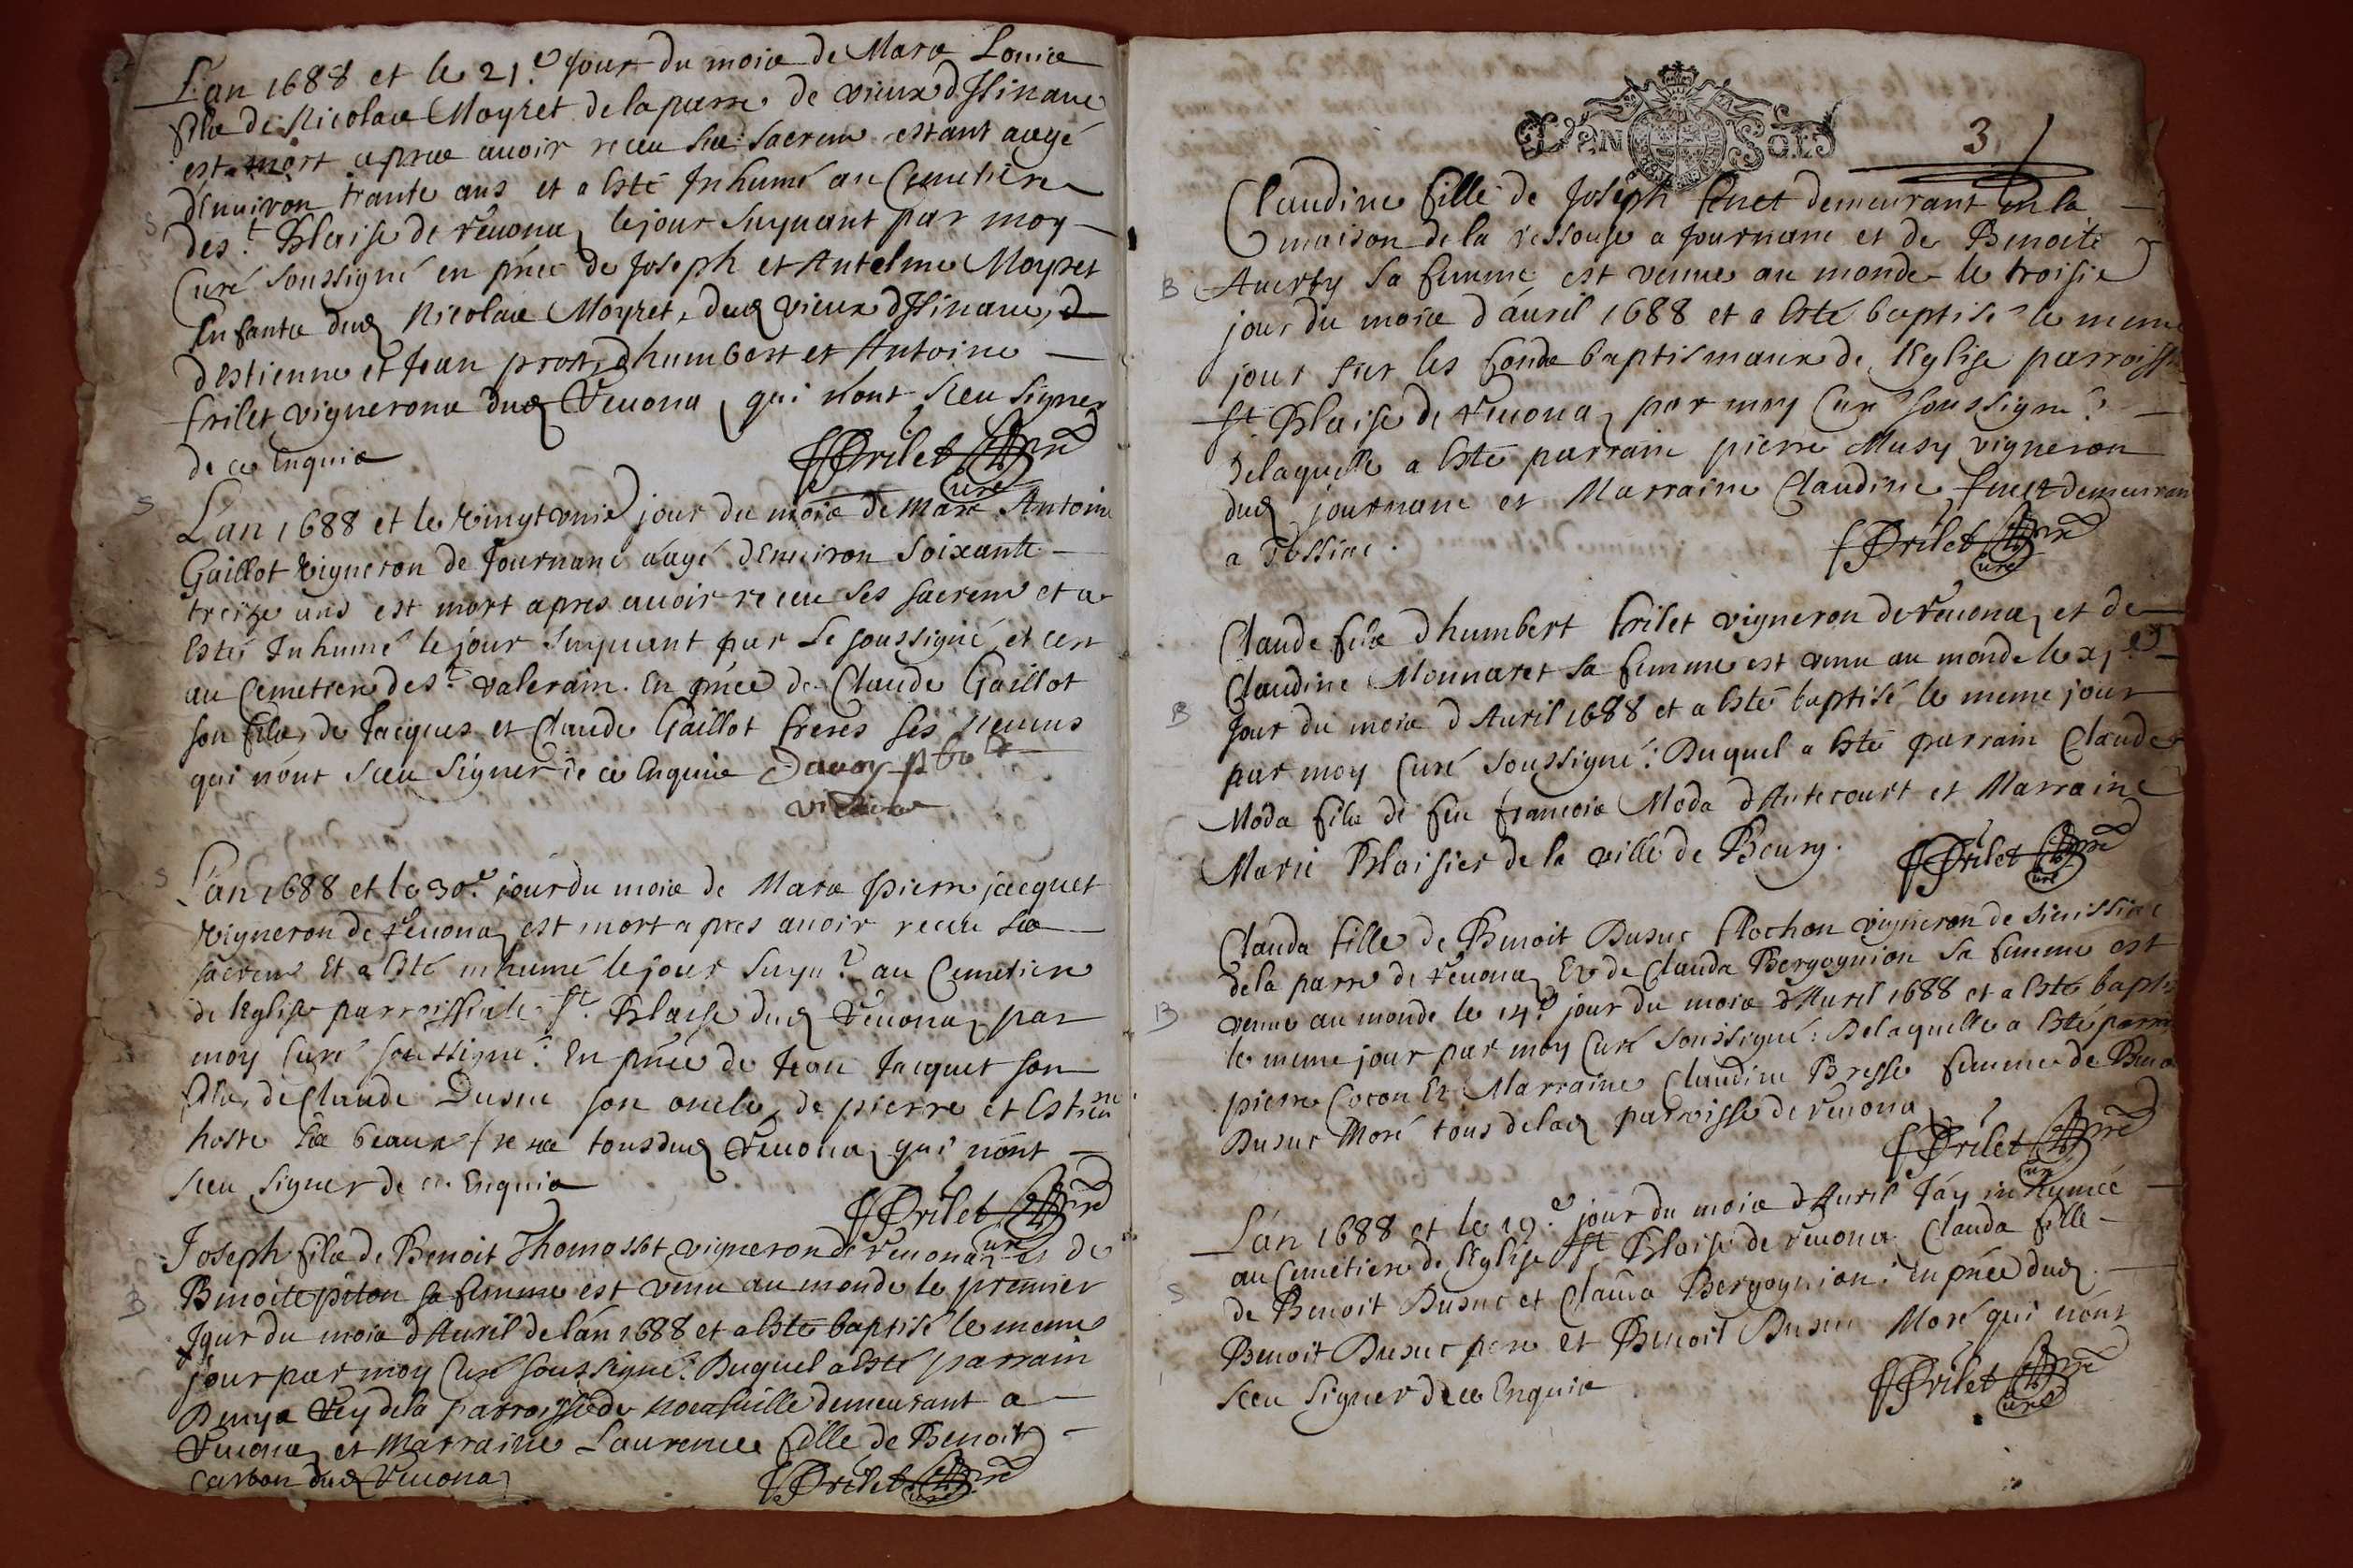 L'an 1688 et le 21.e jour du mois de Mars Louis
fils de Nicolas Moyret de la parre de vieux d'Isinaue
est mort apres auoir receu ses sacrem estant aagé
d'enuiron trante ans et a Esté Inhumé au Cemetiere
de st Blaise de Reuona le jour suyuant par moy
Curé soussigné en pnce de Joseph et Antelme Moyret
Enfants dud Nicolas Moyret, dud vieux d'Isinaue, d
d'Estienne et Jean prost, d'humbert et Antoine
frilet vignerons dud Reuona qui n'ont sceu signer
de ce Enquis
Frilet
Curé
L'an 1688 et le vingt vnie jour du mois de Mars Antoine
Gaillot vigneron de Journans aagé d'Enuiron soixante
treize ans est mort apres auoir receu ses sacrem et a
Esté Inhumé le jour suyuant par Le soussigné, et cest
au Cemetiere de st valerain. En pnce de Claude Gaillot
son fils, de Jacques et Claude Gaillot freres ses neueus
qui n'ont sceu signer de ce Enquis Dauoy pbre
vicaire
L'an 1688 et le 30.e jour du mois de Mars pierre jacquet
vigneron de Reuona est mort apres auoir receu ses
sacrem Et a Esté inhumé le jour suyu.t au Cemetiere
de l'Eglise parroissiale st. Blaise dud Reuona par
moy Curé soussigné: En pnce de Jean Jacquet son
fils, de Claude Dusuc son oncle, de pierre et Estienne
hoste ses beaux freres tous dud Reuona qui n'ont
sceu signer de ce Enquis
Frilet
Curé
Joseph fils de Benoit Thomasset vigneron de Reuona et de
Benoite piton sa femme est venu au monde le premier
Jour du mois d'Auril de l'an 1688 et a Esté baptisé le meme
jour par moy Curé soussigné: Duquel a Esté parrain
Denys Rey de la parroisse de noeufuille demeurant a
Reuona et Marraine Laurence fille de Benoit
Carbon dud Reuona
Frilet
Curé
L'AN SOLS
3
Claudine fille de Joseph feuet demeurant en la
maison de la ressouse a Journans et de Benoite
Auerty sa femme est venue au monde le troisie
jour du mois d'auril 1688 et a Esté baptisé le meme
jour sur les fonds baptismaux de l'Eglise parroiss
st Blaise de Reuona par moy Curé soussigné:
De laquelle a Esté parrain pierre Musy vigneron
dud journans et Marraine Claudine feuet demeuran
a Tossiac.
Frilet
Curé
Claude fils d'humbert frilet vigneron de Reuona et de
Claudine Monnaret sa femme est venu au monde le xj.e
Jour du mois d'Auril 1688 et a Esté baptisé le meme jour
par moy Curé soussigné: Duquel a Esté parrain Claude
Moda fils de feu francois Moda d'Autecourt et Marraine
Marie Blaisier de la ville de Bourg.
Frilet
Curé
Clauda fille de Benoit Dusuc Clochon vigneron de
de la parre de Reuona Et de Clauda Bergognion sa femme est
venue au monde le 14.e jour du mois d'Auril 1688 et a Esté bapti
le meme jour par moy Curé soussigné: De laquelle a Esté parra
pierre Cocon Et Marraine Claudine Bresse femme de Beno
Dusuc Moré tous de lad parroisse de Reuona
Frilet
Curé
L'an 1688 et le 19.e jour du mois d'Auril J'ay inhumée
au Cemetiere de l'Eglise st Blaise de Reuona Clauda fille
de Benoit Dusuc et Clauda Bergognion: En pnce dud
Benoit Dusuc pere et Benoit Dusuc Moré qui n'ont
sceu signer de ce Enquis
Frilet
Curé